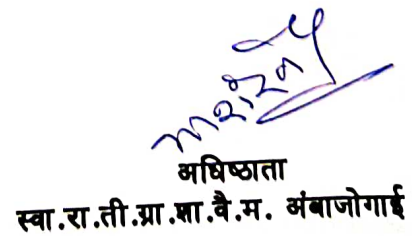 अधिष्ठाता
स्वा.रा.ती.ग्रा.शा.वै.म. अंबाजोगाई